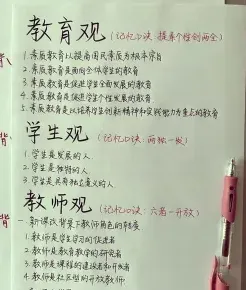 教育观(记忆口诀:提素个性创两全)
1.素质教育以提高国民素质为根本宗旨
2.素质教育是面向全体学生的教育
3.素质教育是促进学生全面发展的教育
4.素质教育是促进学生个性发展的教育
5.素质教育是以培养学生创新精神和实践能力为重点的教育
背
学生观(记忆口诀:两独一发)
1.学生是发展的人
2.学生是独特的人
3.学生是具有独立意义的人
背
教师观(记忆口诀:六者一开放)
一、新课改背景下教师角色的转变
1.教师是学生学习的促进者
2.教师是教育教学的研究者
3.教师是课程的建设者和开发者
4.教师是社区型的开放教师